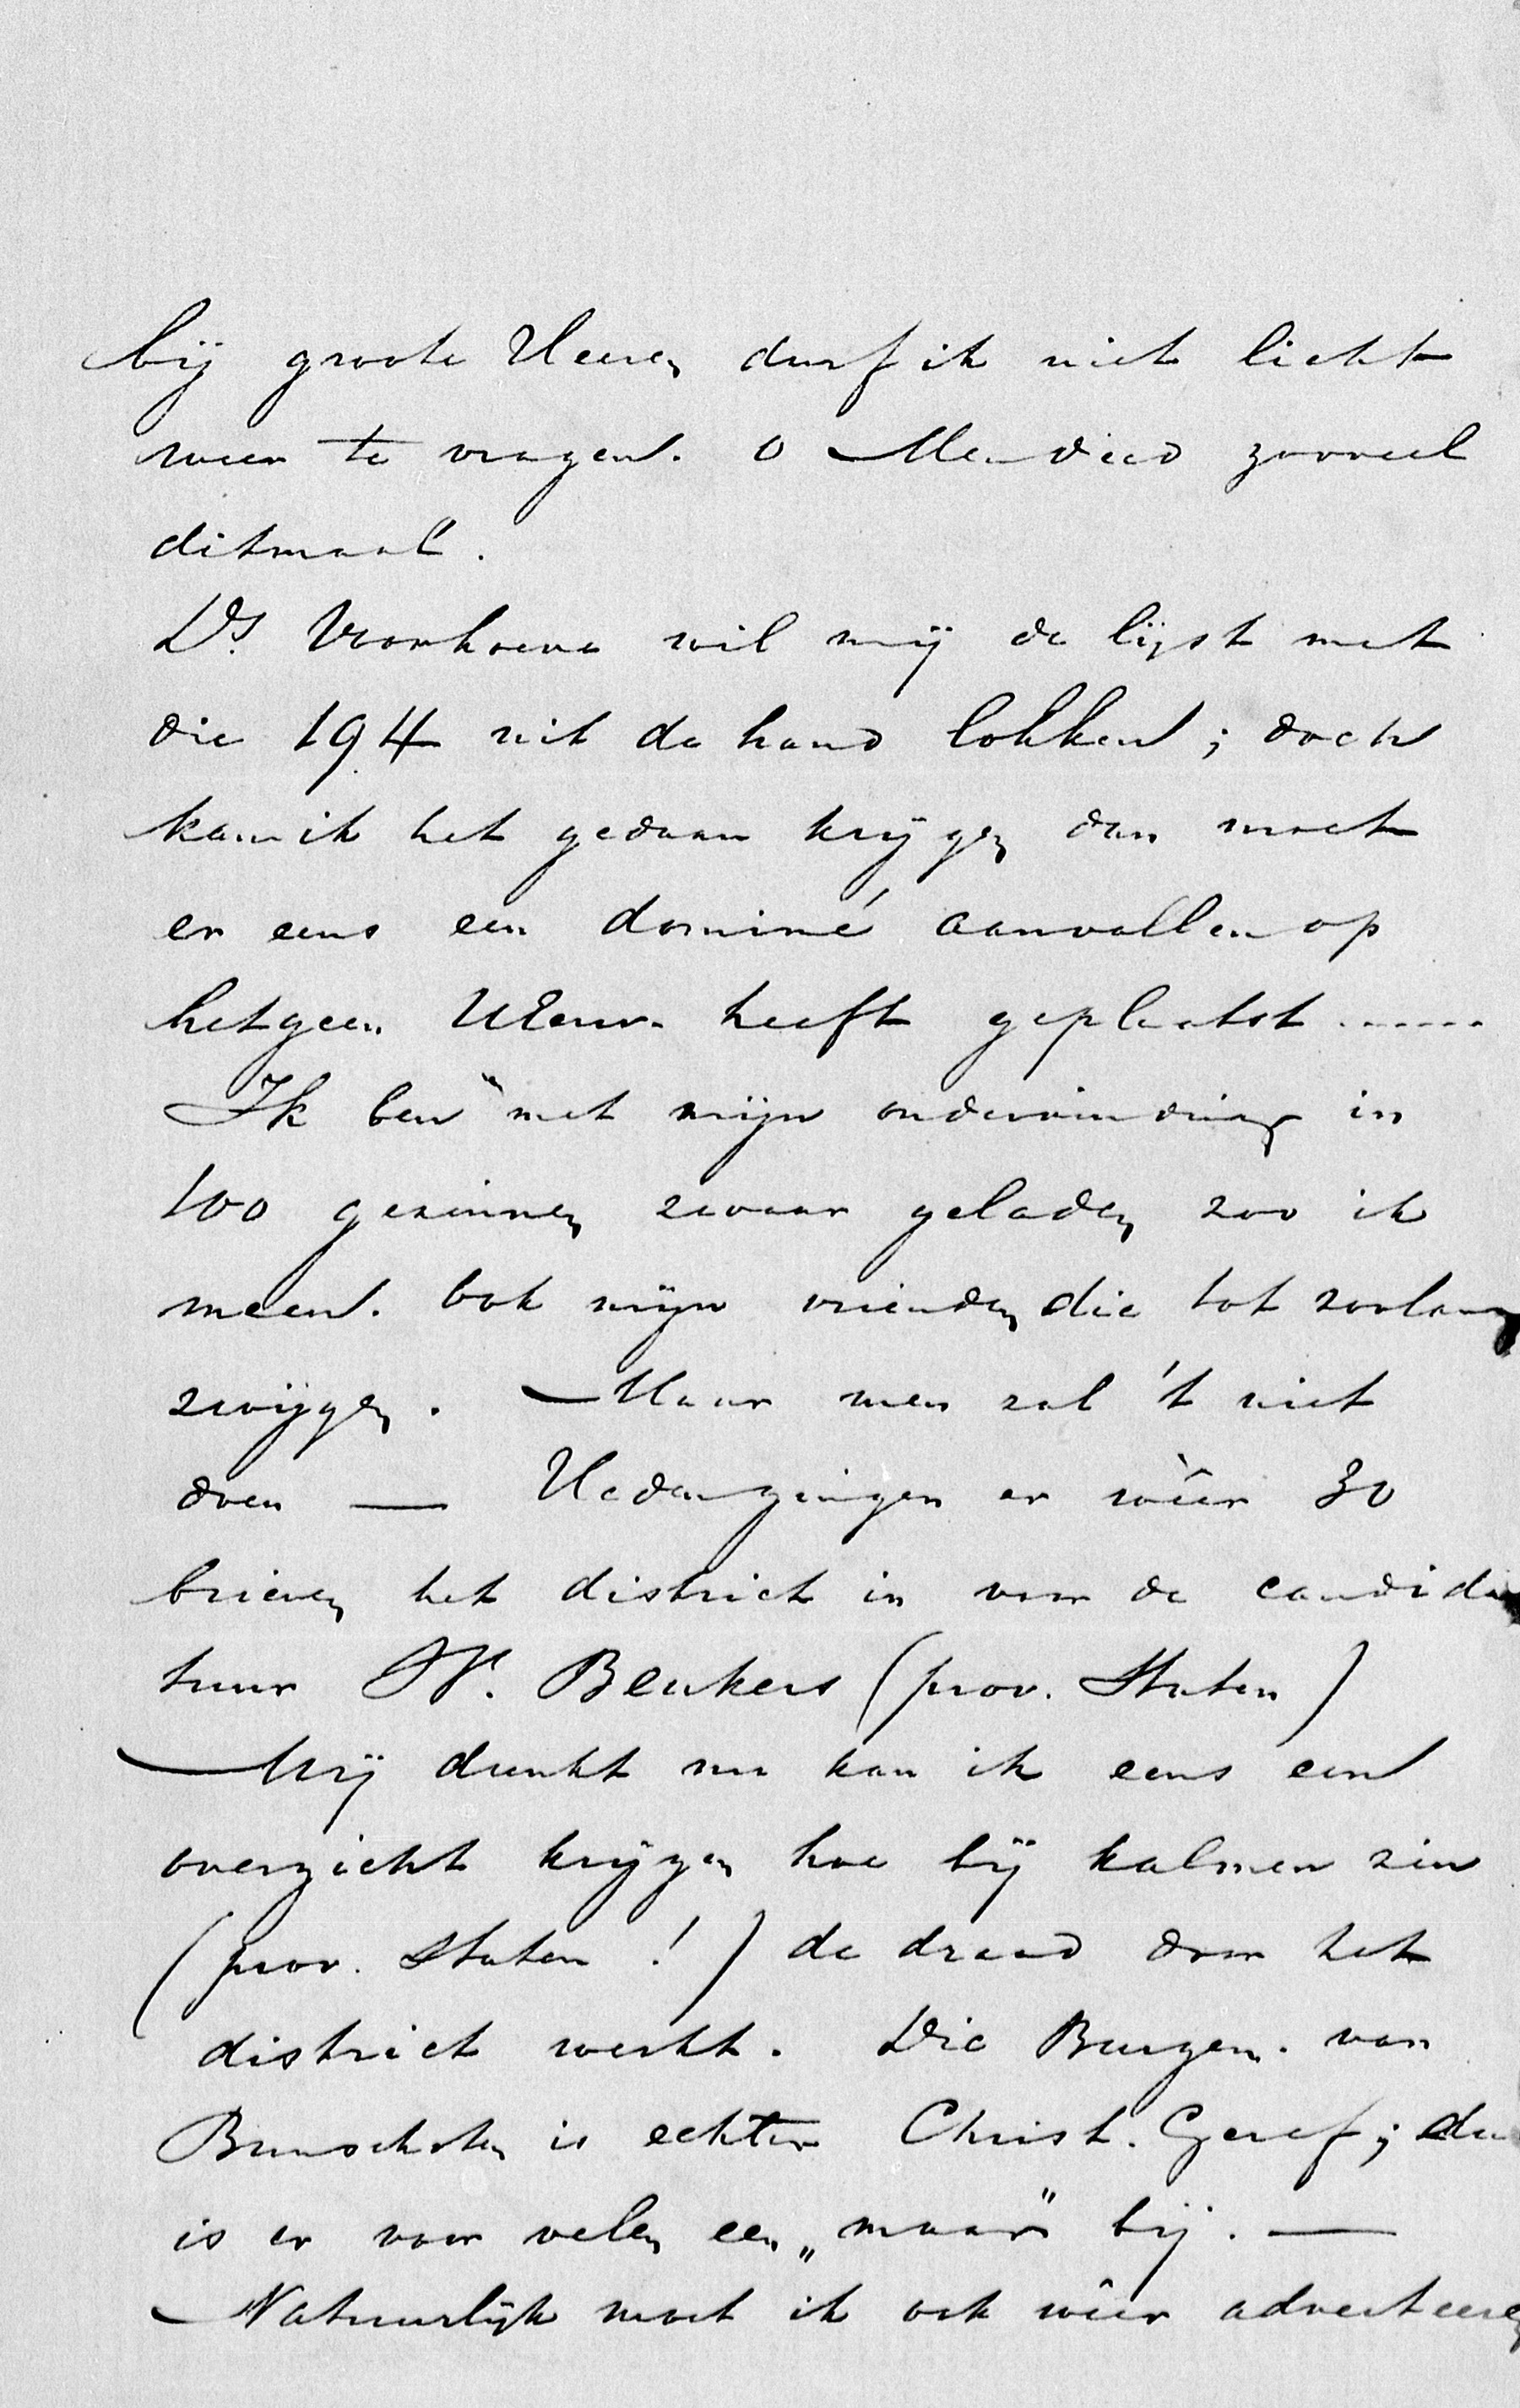 bij groote Heeren durf ik niet licht
weer te vragen. o Men deed zooveel
ditmaal.
Ds. Voorhoeve wil mij de lijst met
die 194 uit de hand lokken; doch
kan ik het gedaan krijgen dan moet
er eens een dominé aanvallen op
hetgeen UEerw. heeft geplaatst......
Ik ben met mijn ondervinding in
100 gezinnen zwaar geladen zoo ik
meen. Ook mijn vrienden die tot zoolang
zwijgen. Maar men zal 't niet
doen — Heden gingen er wêer 30
brieven het district in voor de candida
tuur W. Beukers (prov. Staten)
Mij dunkt nu kan ik eens een
overzicht krijgen hoe bij kalmen zin
(prov. Staten!) de draad door het
district werkt. Die Burgem. van
Bunschoten is echter Christ. Geref; dan
is er voor velen een „maar" bij. —
Natuurlijk moet ik ook wêer adverteeren